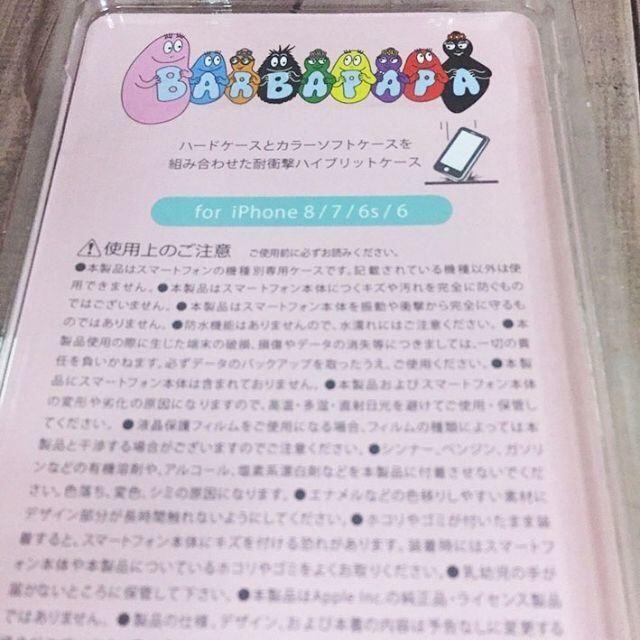 BARBAPAPA
ハードケースとカラーソフトケースを
組み合わせた耐衝撃ハイブリットケース
for iPhone 8/7/6s/6
使用上のご注意 ご使用前に必ずお読みください。
●本製品はスマートフォンの機種別専用ケースです。記載されている機種以外は使
用できません。●本製品はスマートフォン本体につくキズや汚れを完全に防ぐもの
ではございません。●本製品はスマートフォン本体を振動や衝撃から完全に守るも
のではありません。●防水機能はありませんので、水濡れにはご注意ください。●本
製品使用の際に生じた端末の破損、損傷やデータの消失等につきましては、一切の責
任を負いかねます。必ずデータのバックアップを取ったうえ、ご使用ください。●本製
品にスマートフォン本体は含まれておりません。●本製品およびスマートフォン本体
の変形や劣化の原因になりますので、高温・多湿・直射日光を避けてご使用・保管し
てください。●液晶保護フィルムをご使用になる場合、フィルムの種類によっては本
製品と干渉する場合がございますのでご注意ください。●シンナー、ベンジン、ガソリ
ンなどの有機溶剤や、アルコール、塩素系漂白剤などを本製品に付着させないでくだ
さい。色落ち、変色、シミの原因になります。●エナメルなどの色移りしやすい素材に
デザイン部分が長時間触れないようにしてください。●ホコリやゴミが付いたまま装
着すると、スマートフォン本体にキズを付ける恐れがあります。装着時にはスマートフ
ォン本体や本製品についているホコリやゴミをよくお取りください。●乳幼児の手が
届かないところに保管して下さい。●本製品はApple Inc.の純正品・ライセンス製品
ではありません。●製品の仕様、デザイン、および本書の内容は予告なしに変更する